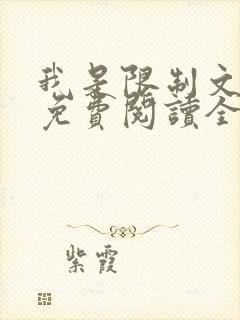 我是限制文
免費閱讀全
紫霞